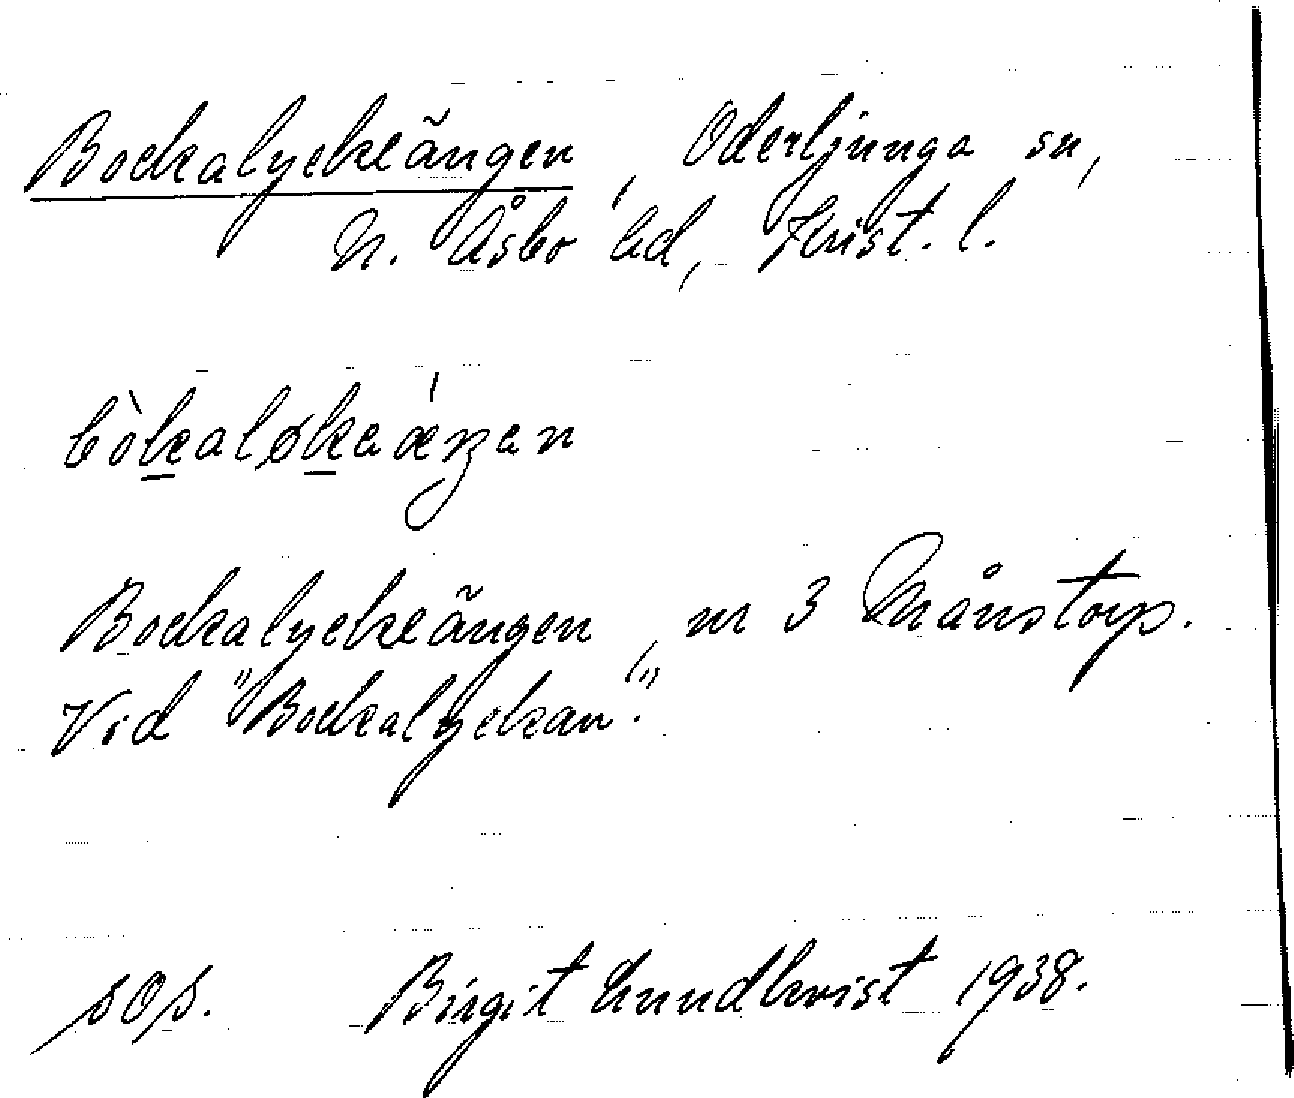 Bockalyckeängen, Oderljunga sn,
N. Åsbo hd, Krist. l.
bòkaløkeæ´ŋen
Bockalyckeängen, nr 3 Månstorp.
Vid "Bockalyckan".
sOs. Birgit Lundkvist 1938.